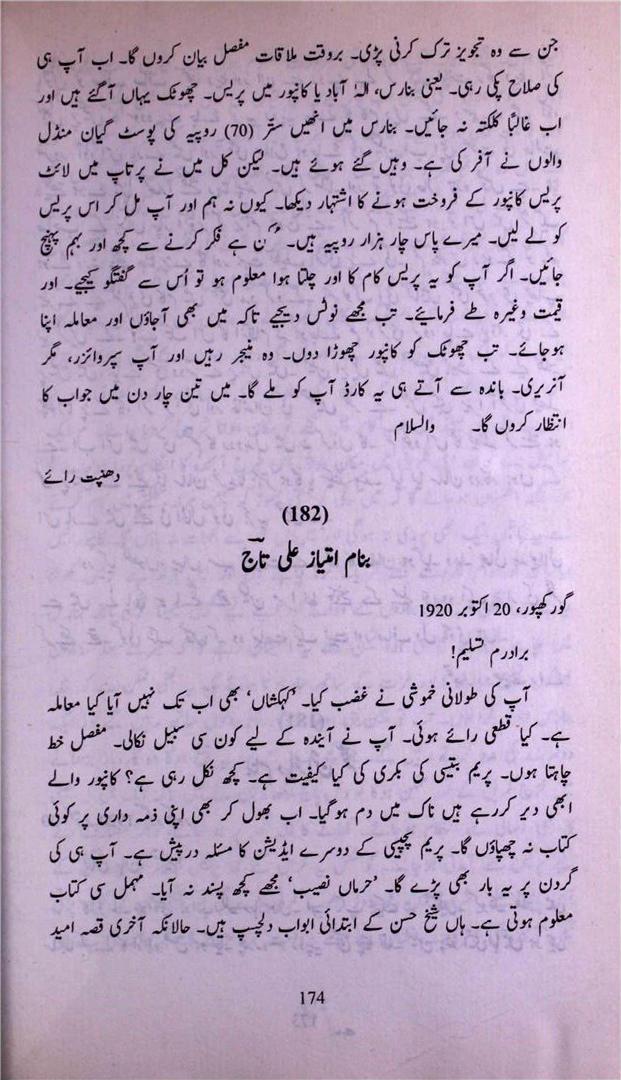 جن سے وہ تجویز ترک کرنی پڑی۔ بروقت ملاقات مفصل بیان کروں گا۔ اب آپ ہی
کی صلاح پکی رہی۔ یعنی بنارس، الہٰ آباد یا کانپور میں پریس۔ چھوٹک یہاں آگئے ہیں اور
اب غالباً کلکتہ نہ جائیں۔ بنارس میں انھیں ستّر (70) روپیہ کی پوسٹ گیان منڈل
والوں نے آفر کی ہے۔ وہیں گئے ہوئے ہیں۔ لیکن کل میں نے پرتاپ میں لائٹ
پریس کانپور کے فروخت ہونے کا اشتہار دیکھا۔ کیوں نہ ہم اور آپ مل کر اس پریس
کو لے لیں۔ میرے پاس چار ہزار روپیہ ہیں۔ ہے فکر کرنے سے کچھ اور بہم پہنچ
جائیں۔ اگر آپ کو یہ پریس کام کا اور چلتا ہوا معلوم ہو تو اُس سے گفتگو کیجیے۔ اور
قیمت وغیرہ طے فرمائیے۔ تب مجھے نوٹس دیجیے تاکہ میں بھی آجاؤں اور معاملہ اپنا
ہوجائے۔ تب چھوٹک کو کانپور چھوڑا دوں۔ وہ منیجر رہیں اور آپ سپروائزر، مگر
آنریری۔ باندہ سے آتے ہی یہ کارڈ آپ کو ملے گا۔ میں تین چار دن میں جواب کا
انتظار کروں گا۔ والسلام
دھنپت رائے
(182)
بنام امتیاز علی تاج
گورکھپور، 20 اکتوبر 1920
برادرم تسلیم!
آپ کی طولانی خموشی نے غضب کیا۔ ’کہکشاں‘ بھی اب تک نہیں آیا کیا معاملہ
ہے۔ کیا قطعی رائے ہوئی۔ آپ نے آیندہ کے لیے کون سی سبیل نکالی۔ مفصل خط
چاہتا ہوں۔ پریم بتیسی کی بکری کی کیا کیفیت ہے۔ کچھ نکل رہی ہے؟ کانپور والے
ابھی دیر کررہے ہیں ناک میں دم ہوگیا۔ اب بھول کر بھی اپنی ذمہ داری پر کوئی
کتاب نہ چھپاؤں گا۔ پریم پچیسی کے دوسرے ایڈیشن کا مسئلہ درپیش ہے۔ آپ ہی کی
گردن پر یہ بار بھی پڑے گا۔ ’حرماں نصیب‘ مجھے کچھ پسند نہ آیا۔ مہمل سی کتاب
معلوم ہوتی ہے۔ ہاں شیخ حسن کے ابتدائی ابواب دلچسپ ہیں۔ حالانکہ آخری قصہ امید
174